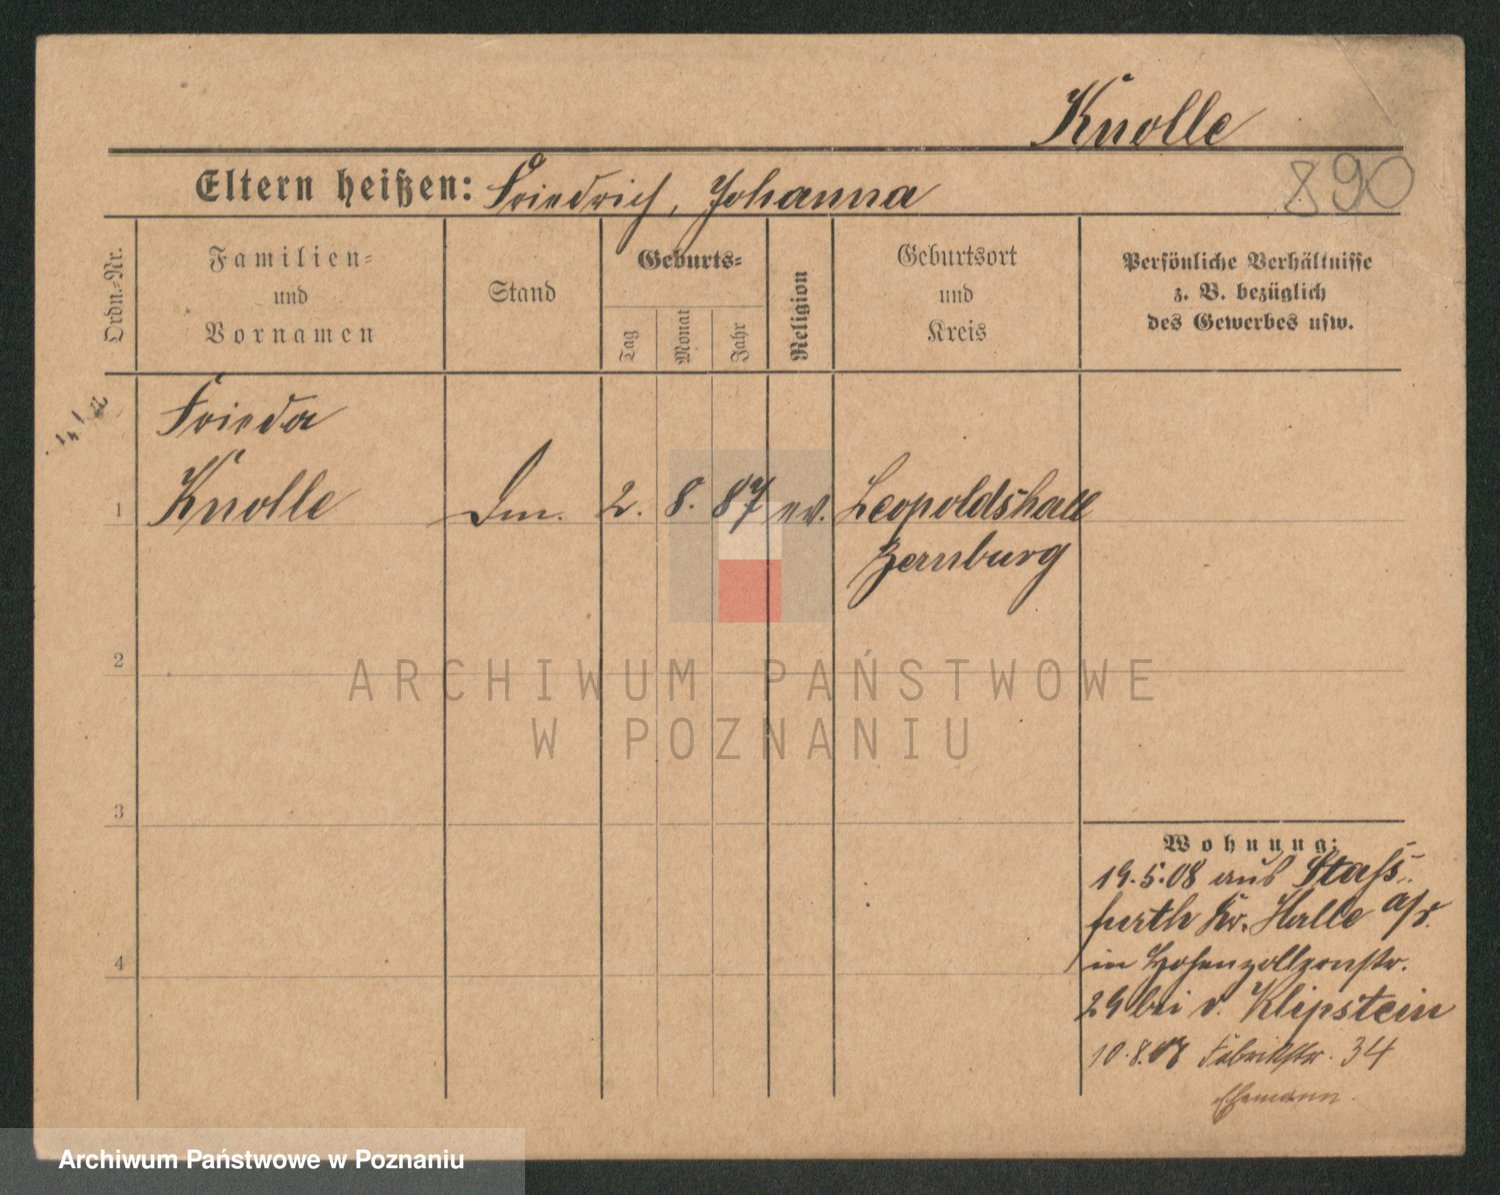 Knolle
890
Eltern heißen: Friedrich, Johanna
Ordn.-Nr.
Familien-
und
Vornamen
Stand
Geburts-
Tag
Monat
Jahr
Religion
Geburtsort
und
Kreis
Persönliche Verhältnisse
z. B. bezüglich
des Gewerbes usw.
Frieda
1 Knolle 2. 8. 87 ev. Leopoldshall
Bernburg
2
3
4
Wohnung:
19.5.08 aus Stass-
furth Kr. Halle a/S.
in Hohenzollernstr.
29 bei v. Klipstein
10.8.08 Fabrikstr. 34
Ehemann.
ARCHIWUM PAŃSTWOWE
W POZNANIU
Archiwum Państwowe w Poznaniu